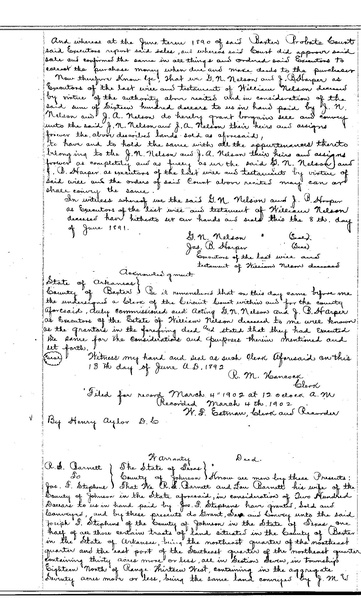 And whereas at the June term 1890 of said Baxter Probate Court
said Executors report said sales, and whereas said Court did approve said
sale and confirmed the same in all things and ordered said Executors to
collect the purchase money when due and make deeds to the purchaser
Now therefore Know Ye, That we G. N. Nelson and J. B. Harper as
Executors of the last will and testament of William Nelson deceased
by virtue of the authority above recited and in consideration of the
said sum of Sixteen hundred dollars to us in hand paid by J. N.
Nelson and J. A. Nelson do hereby grant bargain sell and convey
unto the said J. N. Nelson and J. A. Nelson their heirs and assigns
forever the above described lands, sold as aforesaid,
To have and to hold the same with all the appurtenances thereto
belonging to the J. N. Nelson and J. A. Nelson their heirs and assigns
forever as completely and as fully as we the said G. N. Nelson and
J. B. Harper as executors of the last will and testament by virtue of
said will and the orders of said Court above recited may can or
should convey the same.
In witness whereof we the said G. N. Nelson and J. B. Harper
as Executors of the last will and testament of William Nelson
deceased have hitherto set our hands and seals this the 8th day
of June 1891.
G. N. Nelson (Seal)
Jas. B. Harper (Seal)
Executors of the last will and
testament of William Nelson deceased
Acknowledgment
State of Arkansas
County of Baxter } Be it remembered that on this day came before me
the undersigned a Clerk of the Circuit Court within and for the county
aforesaid, duly commissioned and acting G. N. Nelson and J. B. Harper
as Executors of the Estate of William Nelson deceased to me well known
as the grantors in the foregoing deed, and stated that they had executed
the same for the consideration and purposes therein mentioned and
set forth.
(Seal) Witness my hand and seal as such Clerk aforesaid on this
13th day of June A.D. 1892
R. M. Hancock
Clerk
Filed for record March 4th 1902 at 12 oclock A. M.
Recorded March 6th, 1902.
W. F. Eatman, Clerk and Recorder
By Henry Aylor D. C.
Warranty Deed.
R. S. Barnett } The State of Texas }
To } County of Johnson } Know all men by these Presents:
Jos. I. Stephens } That We R. S. Barnett and Lou Barnett his wife of the
County of Johnson in the State aforesaid, in consideration of Two Hundred
Dollars to us in hand paid by Jos. I. Stephens have granted, Sold and
Conveyed, and by these presents do Grant, Sell and Convey unto the said
Joseph I. Stephens of the County of Johnson in the State of Texas one
half of all those certain tracts of land situated in the County of Baxter
in the State of Arkansas, being the northwest quarter of the northeast
quarter and the east part of the Southeast quarter of the northeast quarter
containing thirty acres more or less, all in Section Seven, in Township
Eighteen North of Range Thirteen West, containing in the aggregate
Seventy acres more or less, being the same land conveyed by J. M. W